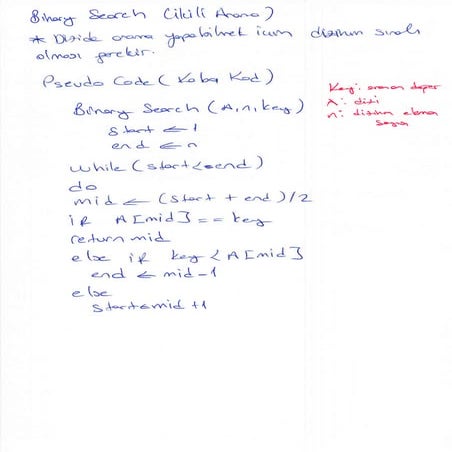 Binary Search (İkili Arama)
* Dizide arama yapabilmek için dizinin sıralı
olması gerekir.
Pseudo Code (Kaba Kod)
Key: aranan değer
A: dizi
n: dizinin eleman
sayısı
Binary Search (A, n, key)
start ← 1
end ← n
while (start <= end)
do
mid ← (start + end) / 2
if A[mid] == key
return mid
else if key < A[mid]
end ← mid - 1
else
start ← mid + 1